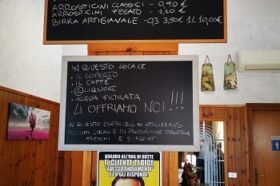 ARROSTICINI CLASSICI - 0,90 €
ARROSTICINI FEGATO - 1,10 €
BIRRA ARTIGIANALE - 0,3 3,50€ 1L 10,00€
IN QUESTO LOCALE
IL COPERTO
IL CAFFÈ
LIQUORE
ACQUA FILTRATA
LI OFFRIAMO NOI!!!
IN QUESTO ESERCIZIO SI UTILIZZANO
LOCALI E DI PRODUZIONE PROPRIA
FRESCHI E
QUANDO ALL'UNA DI NOTTE
IL CLIENTE TI DICE